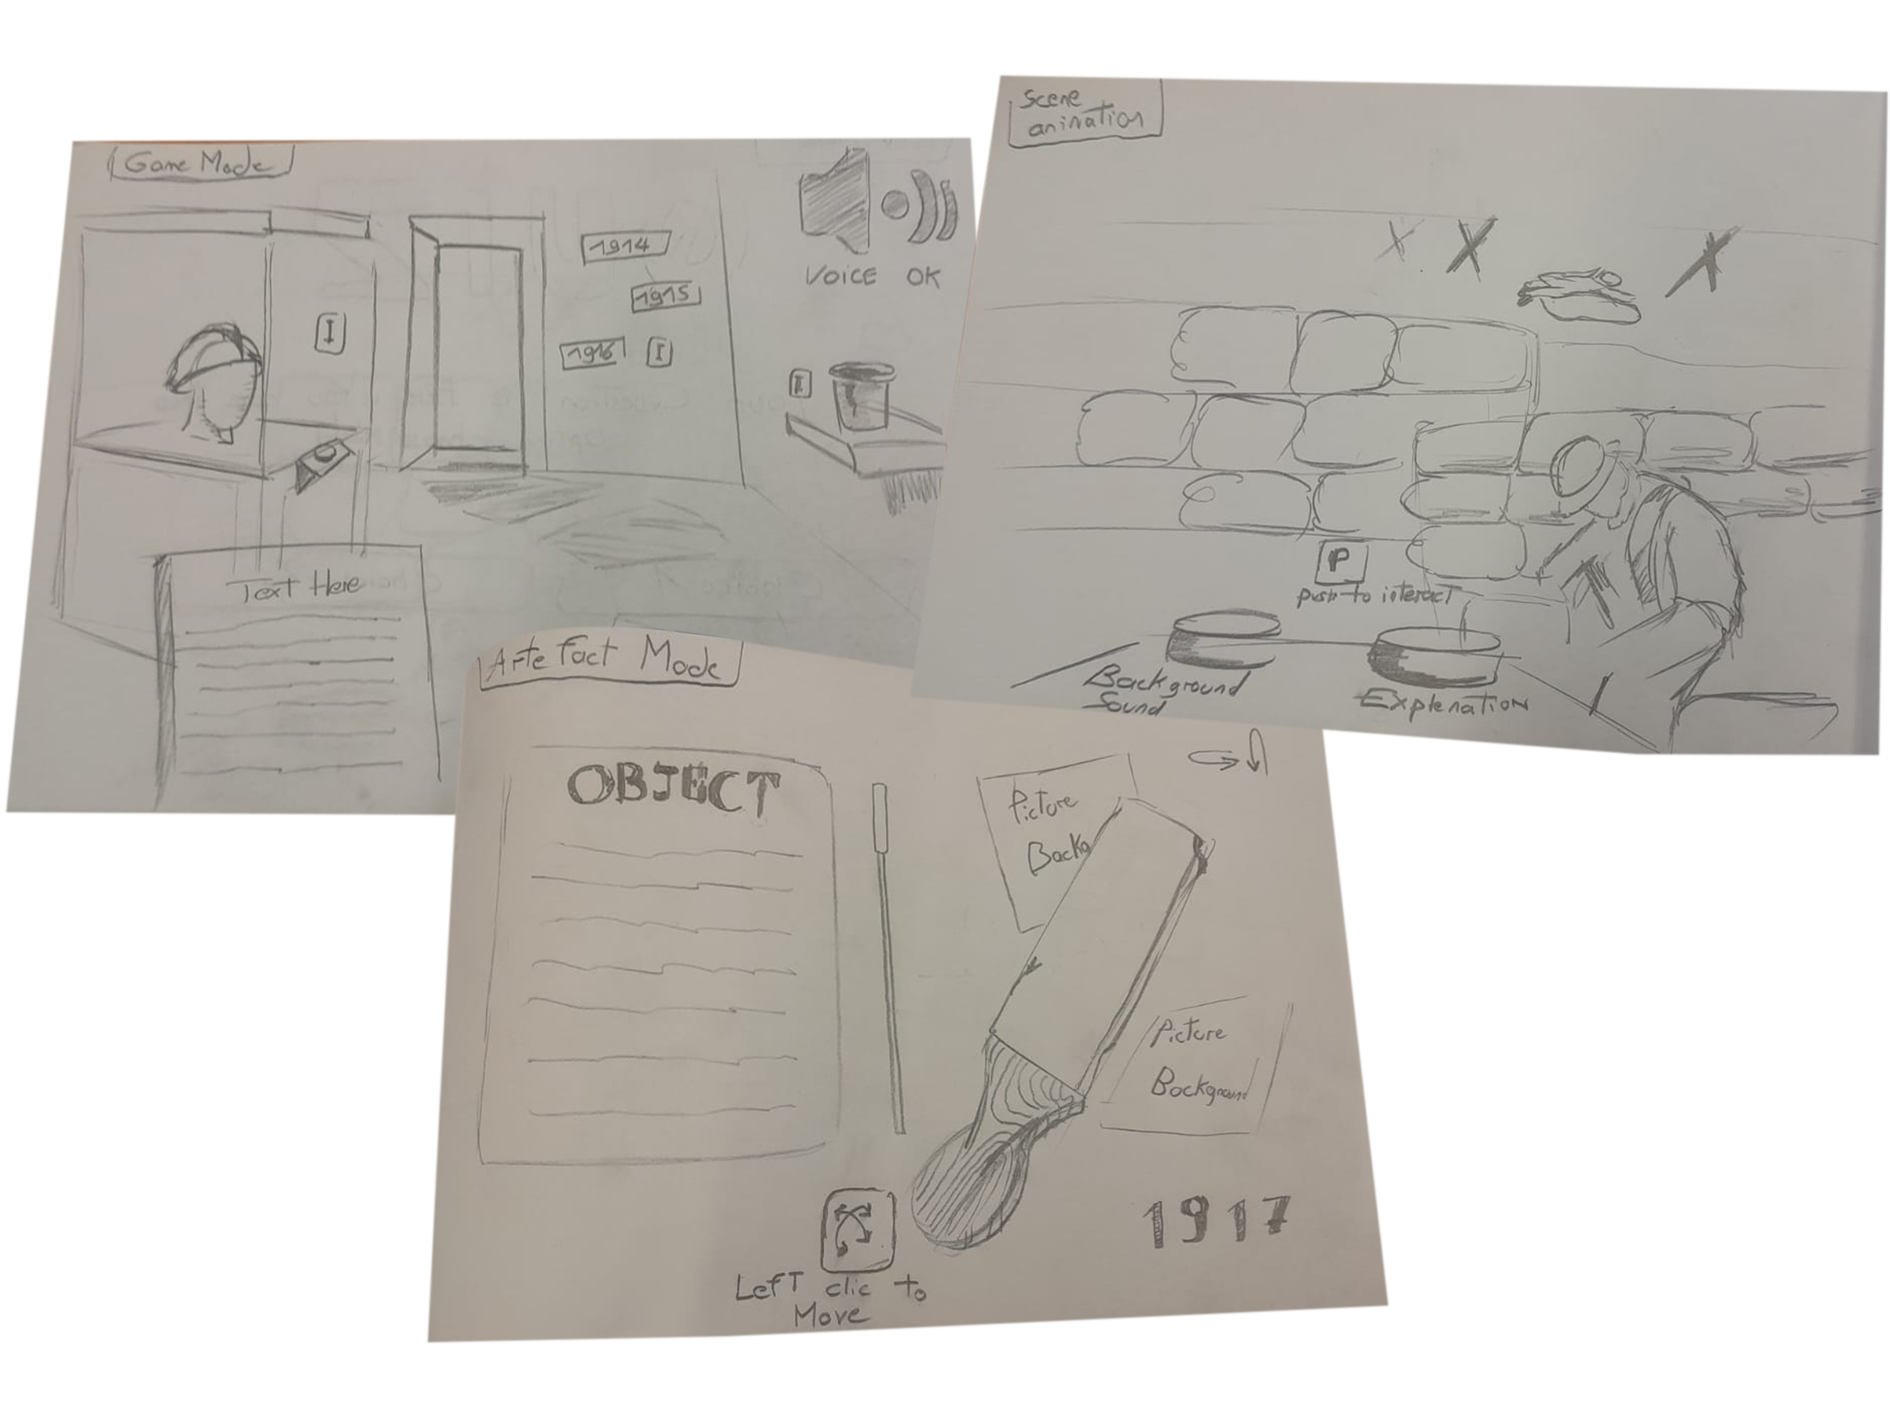 Game Mode
VOICE OK
1914
1915
1916
I
I
I
Text Here
Scene
animation
P
push to interact
Background
Sound
Explenation
Artefact Mode
OBJECT
Picture
Backg
Picture
Background
1917
Left clic to
Move